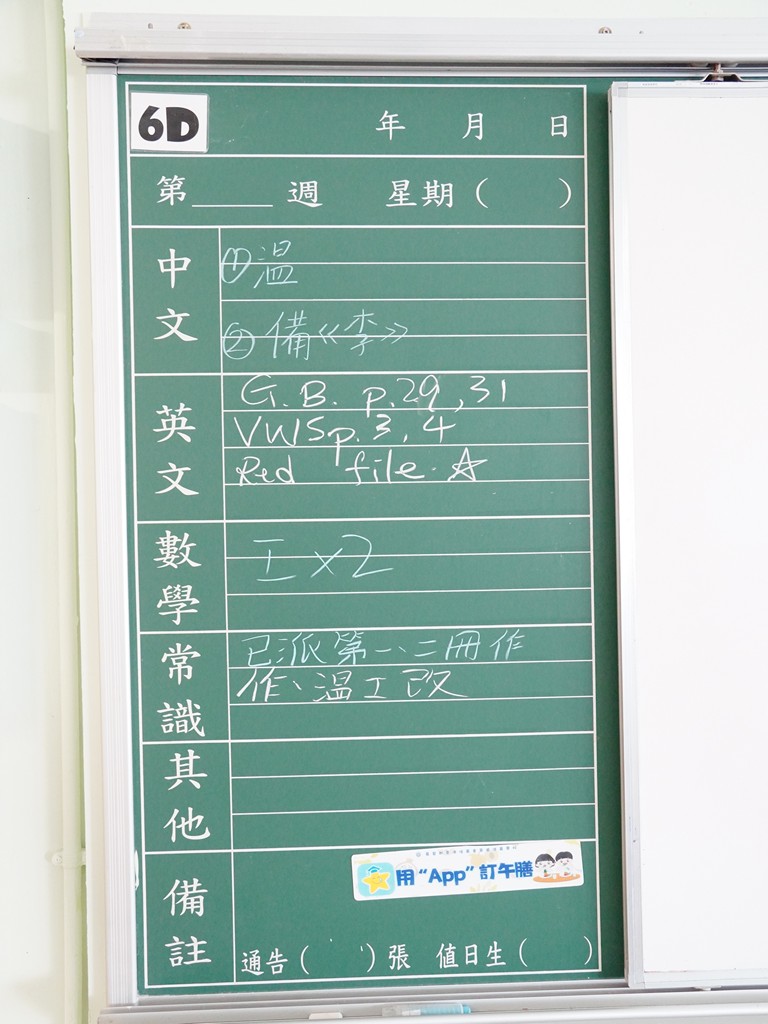 6D 年 月 日
第____週 星期( )
中文
①溫
②備《李》
英文
G.B. p.29,31
VWS p.3,4
Red file.☆
數學
工x2
常識
已派第一、二冊作
作、溫工改
其他
備註
用“App”訂午膳
通告( )張 值日生( )